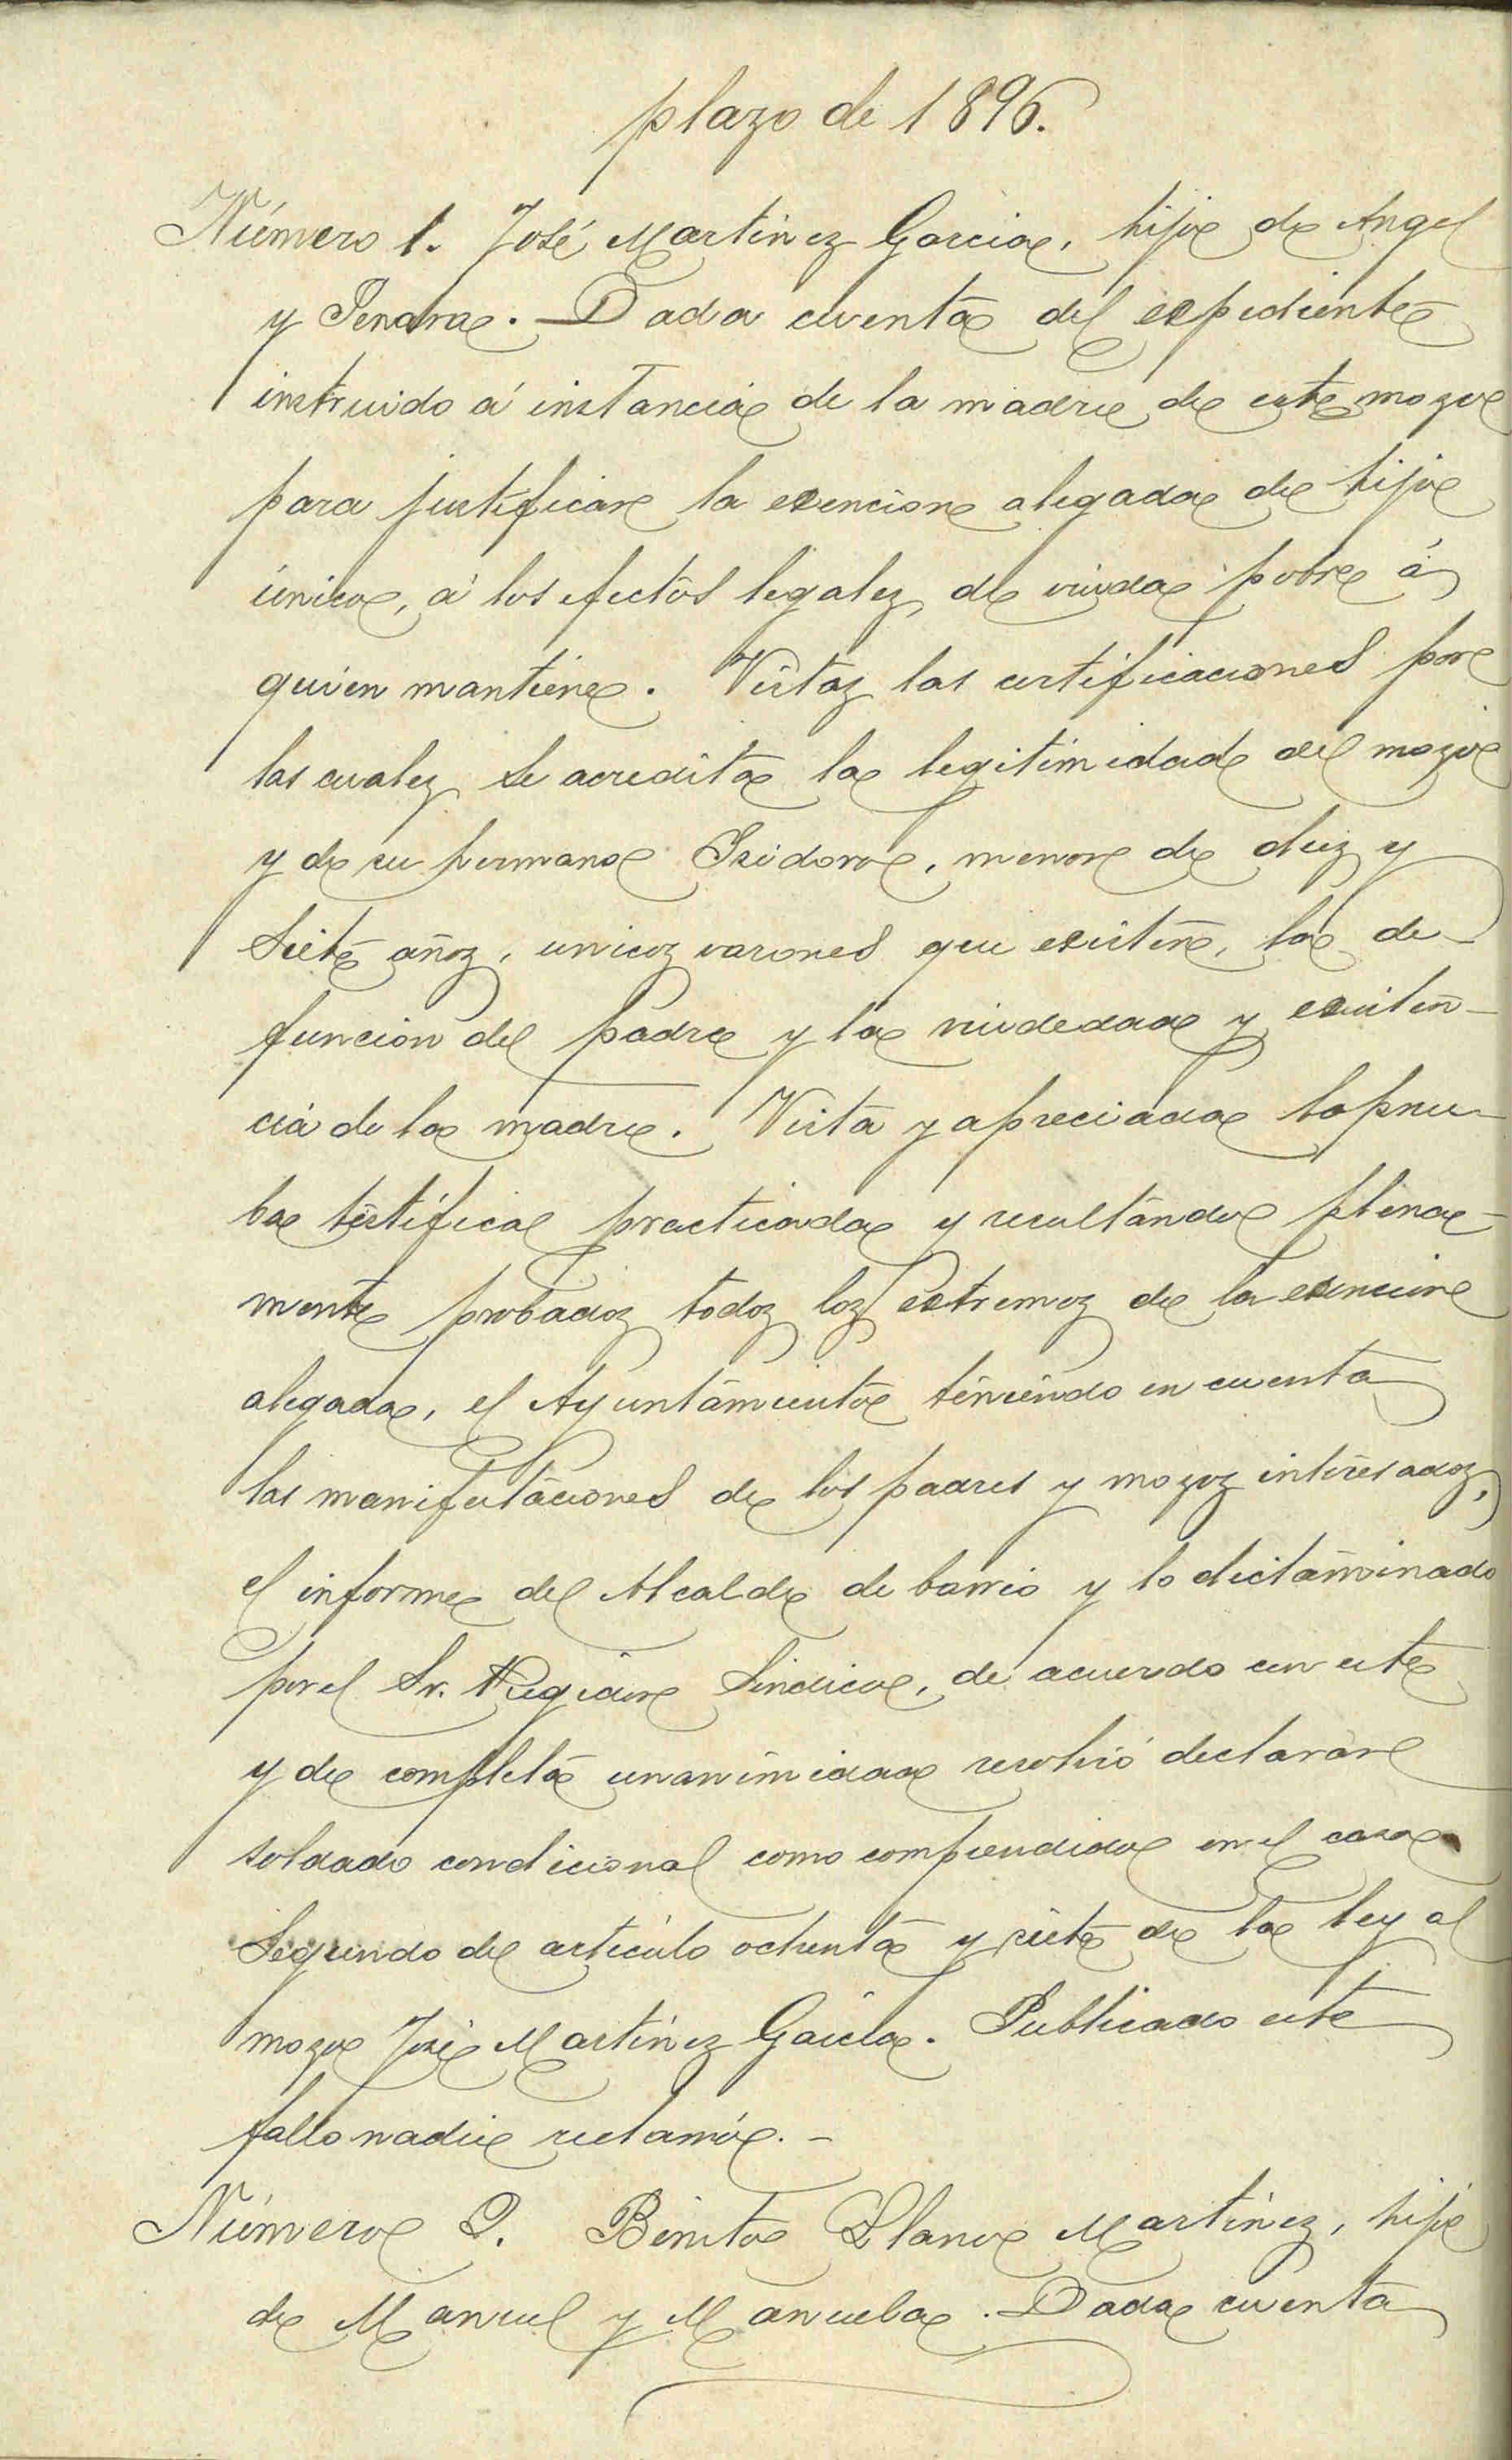 plazo de 1896.
Número 1. José Martinez Garcia, hijo de Angel
y Genara. Dada cuenta del espediente
instruido á instancia de la madre de este mozo
para justificar la esencion alegada de hijo
único, á los efectos legales, de viuda pobre á
quien mantiene. Vistas las certificaciones por
las cuales se acredita la legitimidad del mozo
y de su hermano Isidoro, menor de diez y
siete años, unicos varones que existen, la de-
funcion del padre y la viudedad y existen-
cia de la madre. Vista y apreciada la prue-
ba testifical practicada y resultando plena-
mente probados todos los estremos de la esencion
alegada, el Ayuntamiento teniendo en cuenta
las manifestaciones de los padres y mozos interesados,
el informe del Alcalde de barrio y lo dictaminado
por el Sr. Regidor Sindico, de acuerdo con este
y de completa unanimidad resolvió declarar
soldado condicional como comprendido en el caso
segundo del artículo ochenta y siete de la ley al
mozo José Martínez García. Publicado este
fallo nadie reclamó. -
Número 2. Benito Llano Martínez, hijo
de Manuel y Manuela. Dada cuenta